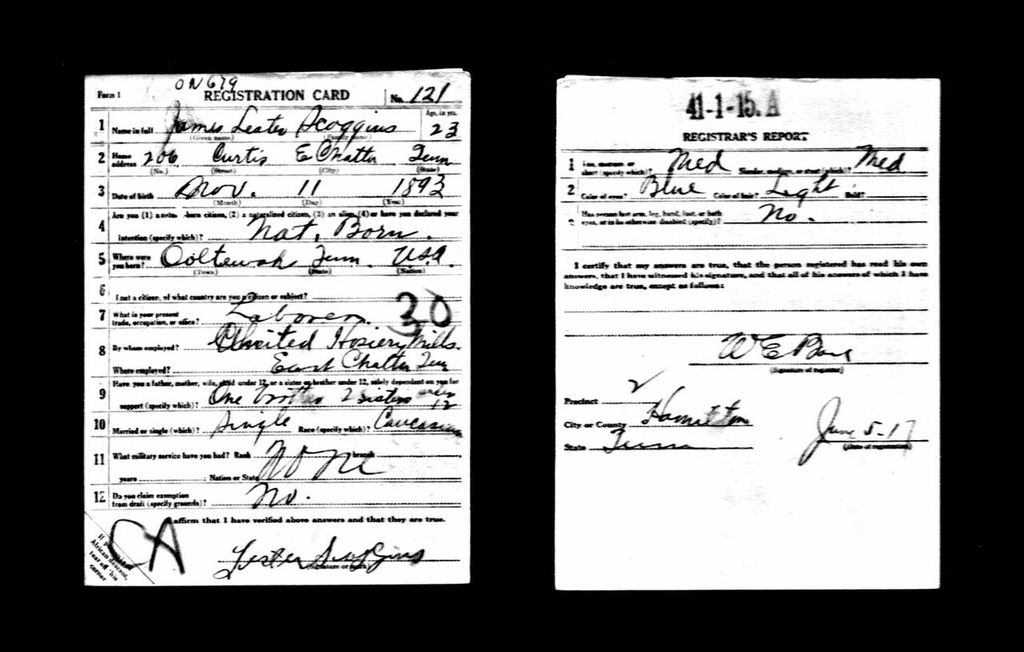 ON679
Form 1 REGISTRATION CARD No. 121
1 Name in full James Lester Scoggins Age, in yrs. 23
(Given name) (Family name)
2 Home address 206 Curtis E Chatta Tenn
(No.) (Street) (City) (State)
3 Date of birth Nov. 11 1893
(Month) (Day) (Year)
Are you (1) a natural-born citizen, (2) a naturalized citizen, (3) an alien, (4) or have you declared your
4 intention (specify which)? Nat. Born.
5 Where were you born? Ooltewah Tenn. USA.
(Town) (State) (Nation)
6 If not a citizen, of what country are you a citizen or subject?
7 What is your present trade, occupation, or office? Laborer 30
8 By whom employed? United Hosiery Mills.
Where employed? East Chatta Ten
9 Have you a father, mother, wife, child under 12, or a sister or brother under 12, solely dependent on you for
support (specify which)? One brother 2 sisters under 12
10 Married or single (which)? Single Race (specify which)? Caucasian
11 What military service have you had? Rank None branch
years Nation or State
12 Do you claim exemption from draft (specify grounds)? No.
I affirm that I have verified above answers and that they are true.
Lester Scoggins
(Signature or mark)
If person is of
African descent,
tear off this
corner
CA
41-1-15. A
REGISTRAR'S REPORT
1 Tall, medium, or short (specify which)? Med Slender, medium, or stout (which)? Med
2 Color of eyes? Blue Color of hair? Light Bald?
3 Has person lost arm, leg, hand, foot, or both
eyes, or is he otherwise disabled (specify)? No.
I certify that my answers are true, that the person registered has read his own
answers, that I have witnessed his signature, and that all of his answers of which I have
knowledge are true, except as follows:
W E
(Signature of registrar)
Precinct 2
City or County Hamilton
State Tenn June 5-17
(Date of registration)